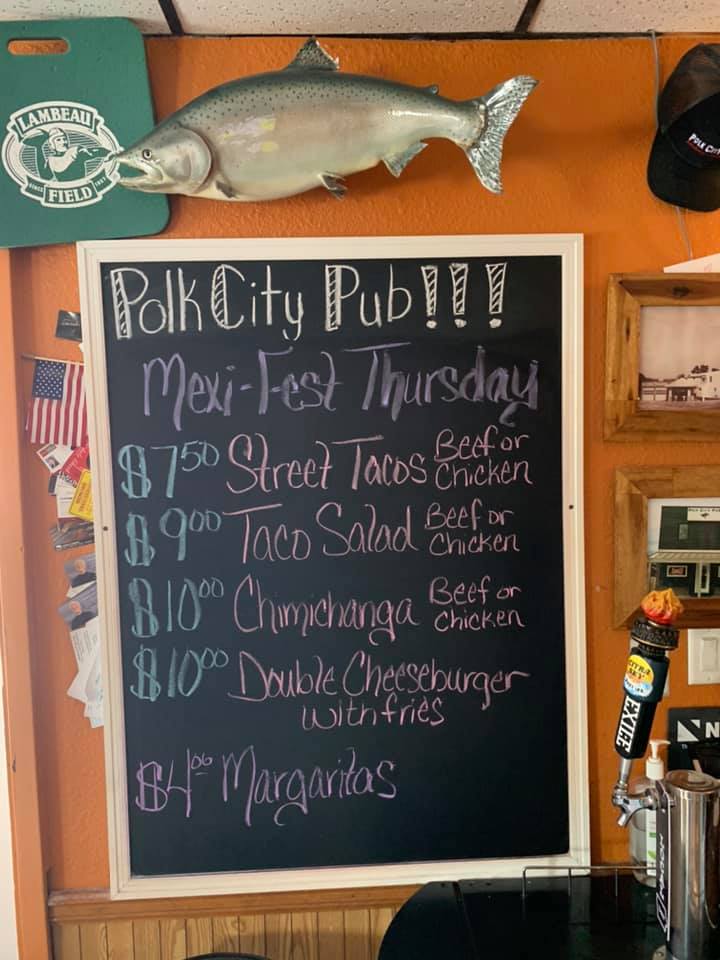 LAMBEAU
SINCE 1957
FIELD
POLK CITY
Polk City Pub!!!
Mexi-Fest Thursday
$7.50 Street Tacos Beef or Chicken
$9.00 Taco Salad Beef or Chicken
$10.00 Chimichanga Beef or Chicken
$10.00 Double Cheeseburger
with fries
$4.00 Margaritas
CITRA
EXILE
N